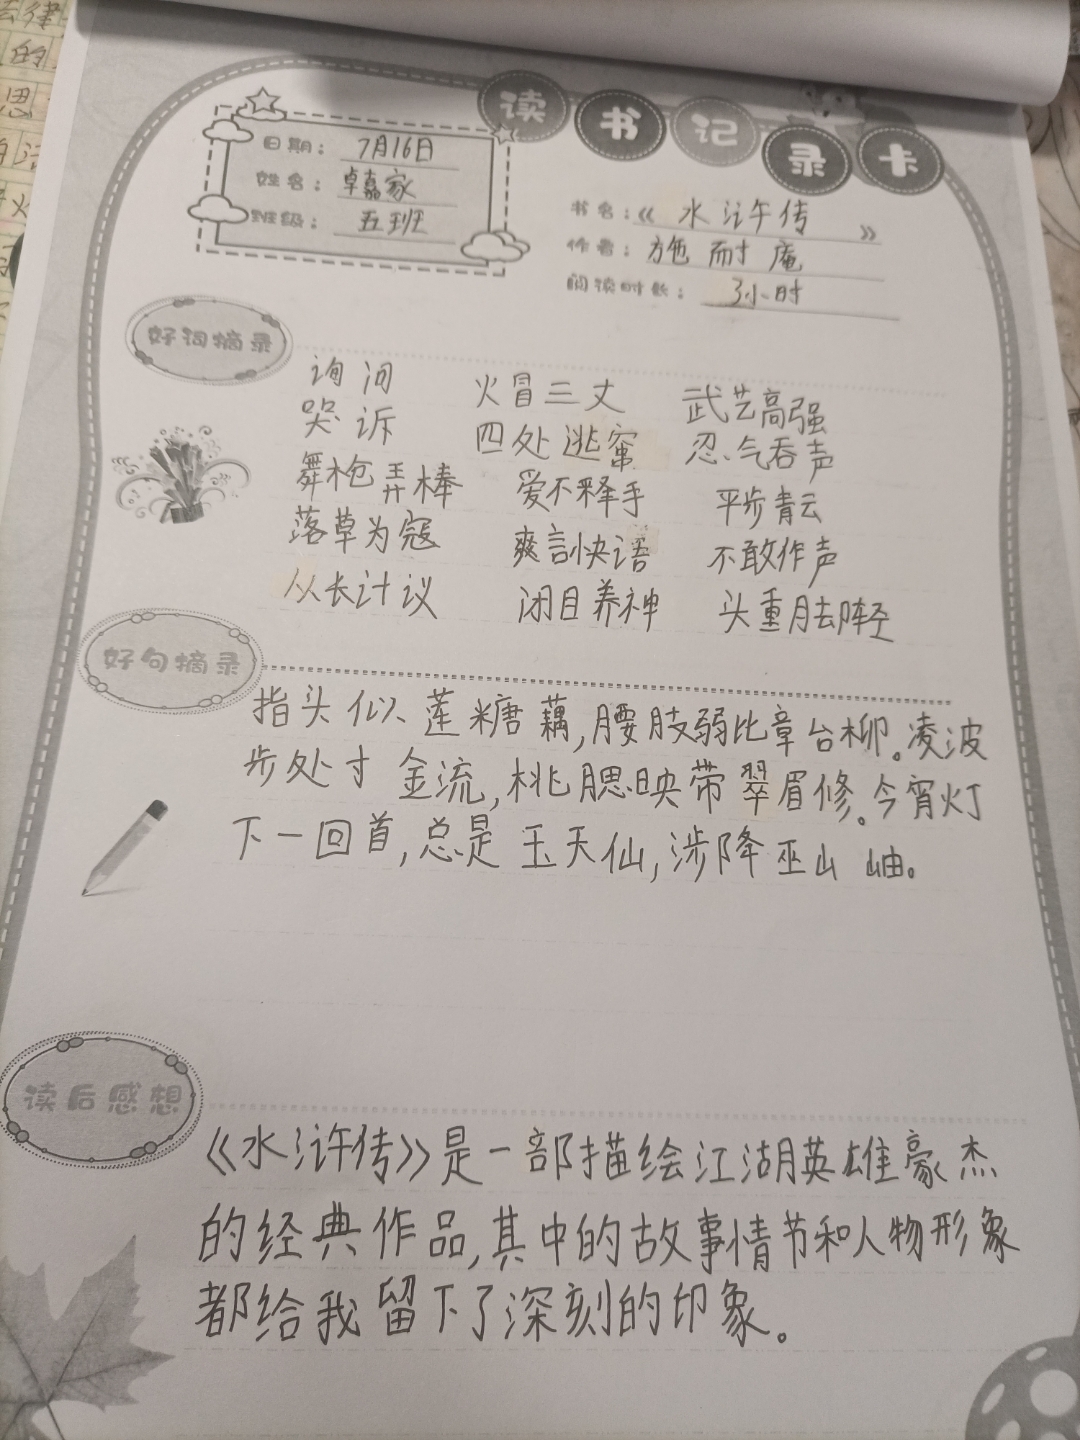 读书记录卡
日期：7月16日
姓名：卓嘉家
班级：五班
书名：《水浒传》
作者：施耐庵
阅读时长：3小时
好词摘录
询问 火冒三丈 武艺高强
哭诉 四处逃窜 忍气吞声
舞枪弄棒 爱不释手 平步青云
落草为寇 爽言快语 不敢作声
从长计议 闭目养神 头重脚轻
好句摘录
指头似莲糖藕，腰肢弱比章台柳。凌波
步处寸金流，桃腮映带翠眉修。今宵灯
下一回首，总是玉天仙，涉降巫山岫。
读后感想
《水浒传》是一部描绘江湖英雄豪杰
的经典作品，其中的故事情节和人物形象
都给我留下了深刻的印象。